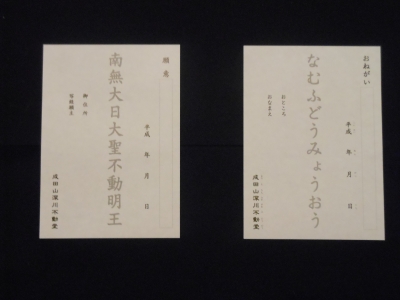 願意
平成 年 月 日
南無大日大聖不動明王
御住所
成田山深川不動堂
おねがい
平成 年 月 日
なむふどうみょうおう
おところ
おなまえ
成田山深川不動堂